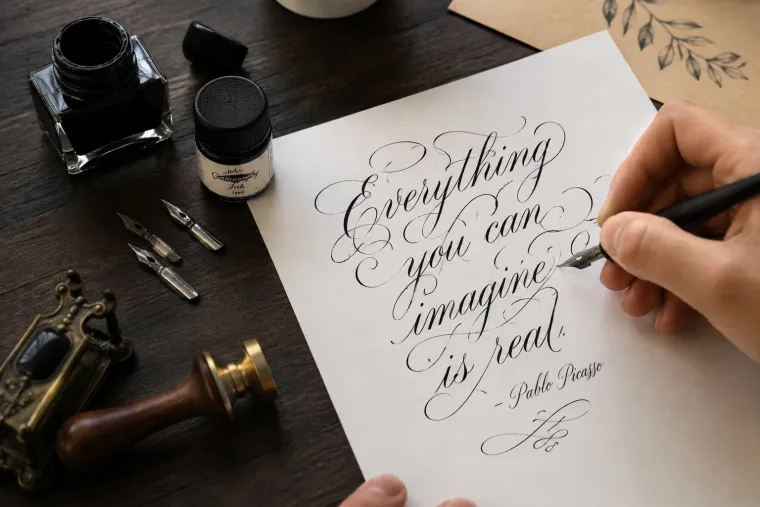 Calligraphy
Ink
Everything
you can
imagine
is real.
- Pablo Picasso